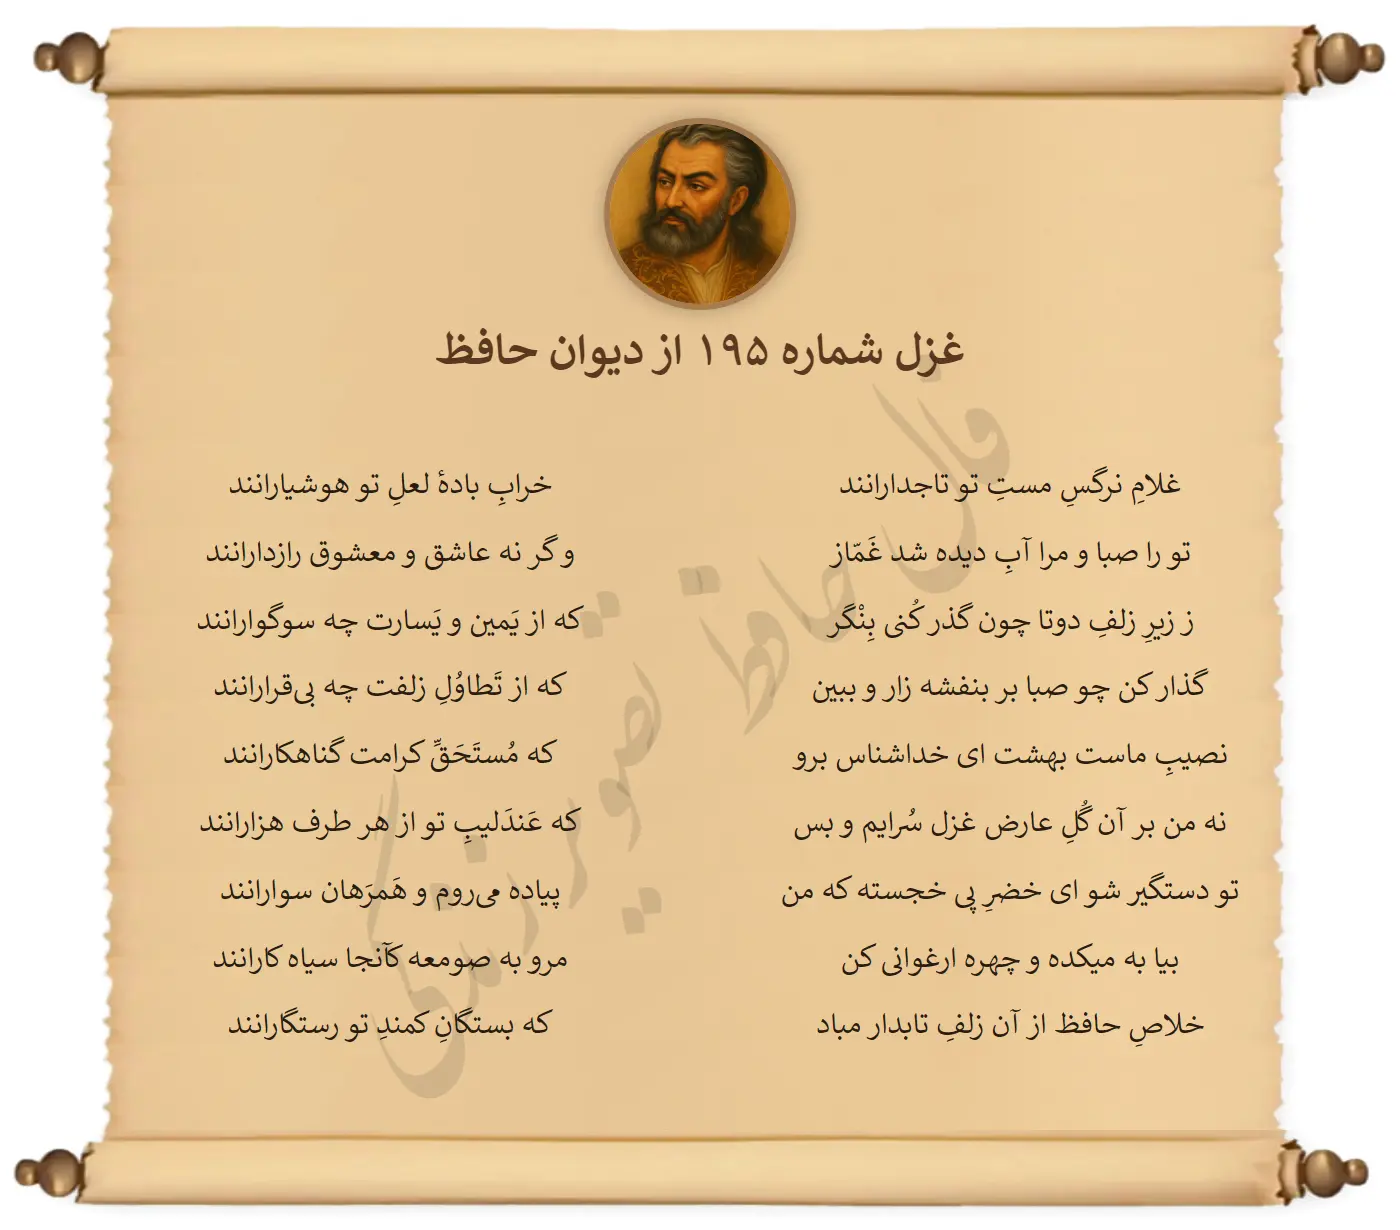 غزل شماره ۱۹۵ از دیوان حافظ
غلامِ نرگسِ مستِ تو تاجدارانند
خرابِ بادهٔ لعلِ تو هوشیارانند
تو را صبا و مرا آبِ دیده شد غَمّاز
و گر نه عاشق و معشوق رازدارانند
ز زیرِ زلفِ دوتا چون گذر کُنی بِنْگر
که از یَمین و یَسارت چه سوگوارانند
گذار کن چو صبا بر بنفشه زار و ببین
که از تَطاوُلِ زلفت چه بی‌قرارانند
نصیبِ ماست بهشت ای خداشناس برو
که مُستَحَقِّ کرامت گناهکارانند
نه من بر آن گُلِ عارض غزل سُرایم و بس
که عَندَلیبِ تو از هر طرف هزارانند
تو دستگیر شو ای خضرِ پی خجسته که من
پیاده می‌روم و هَمرَهان سوارانند
بیا به میکده و چهره ارغوانی کن
مرو به صومعه کآنجا سیاه کارانند
خلاصِ حافظ از آن زلفِ تابدار مباد
که بستگانِ کمندِ تو رستگارانند
فال حافظ تصویر زندگی